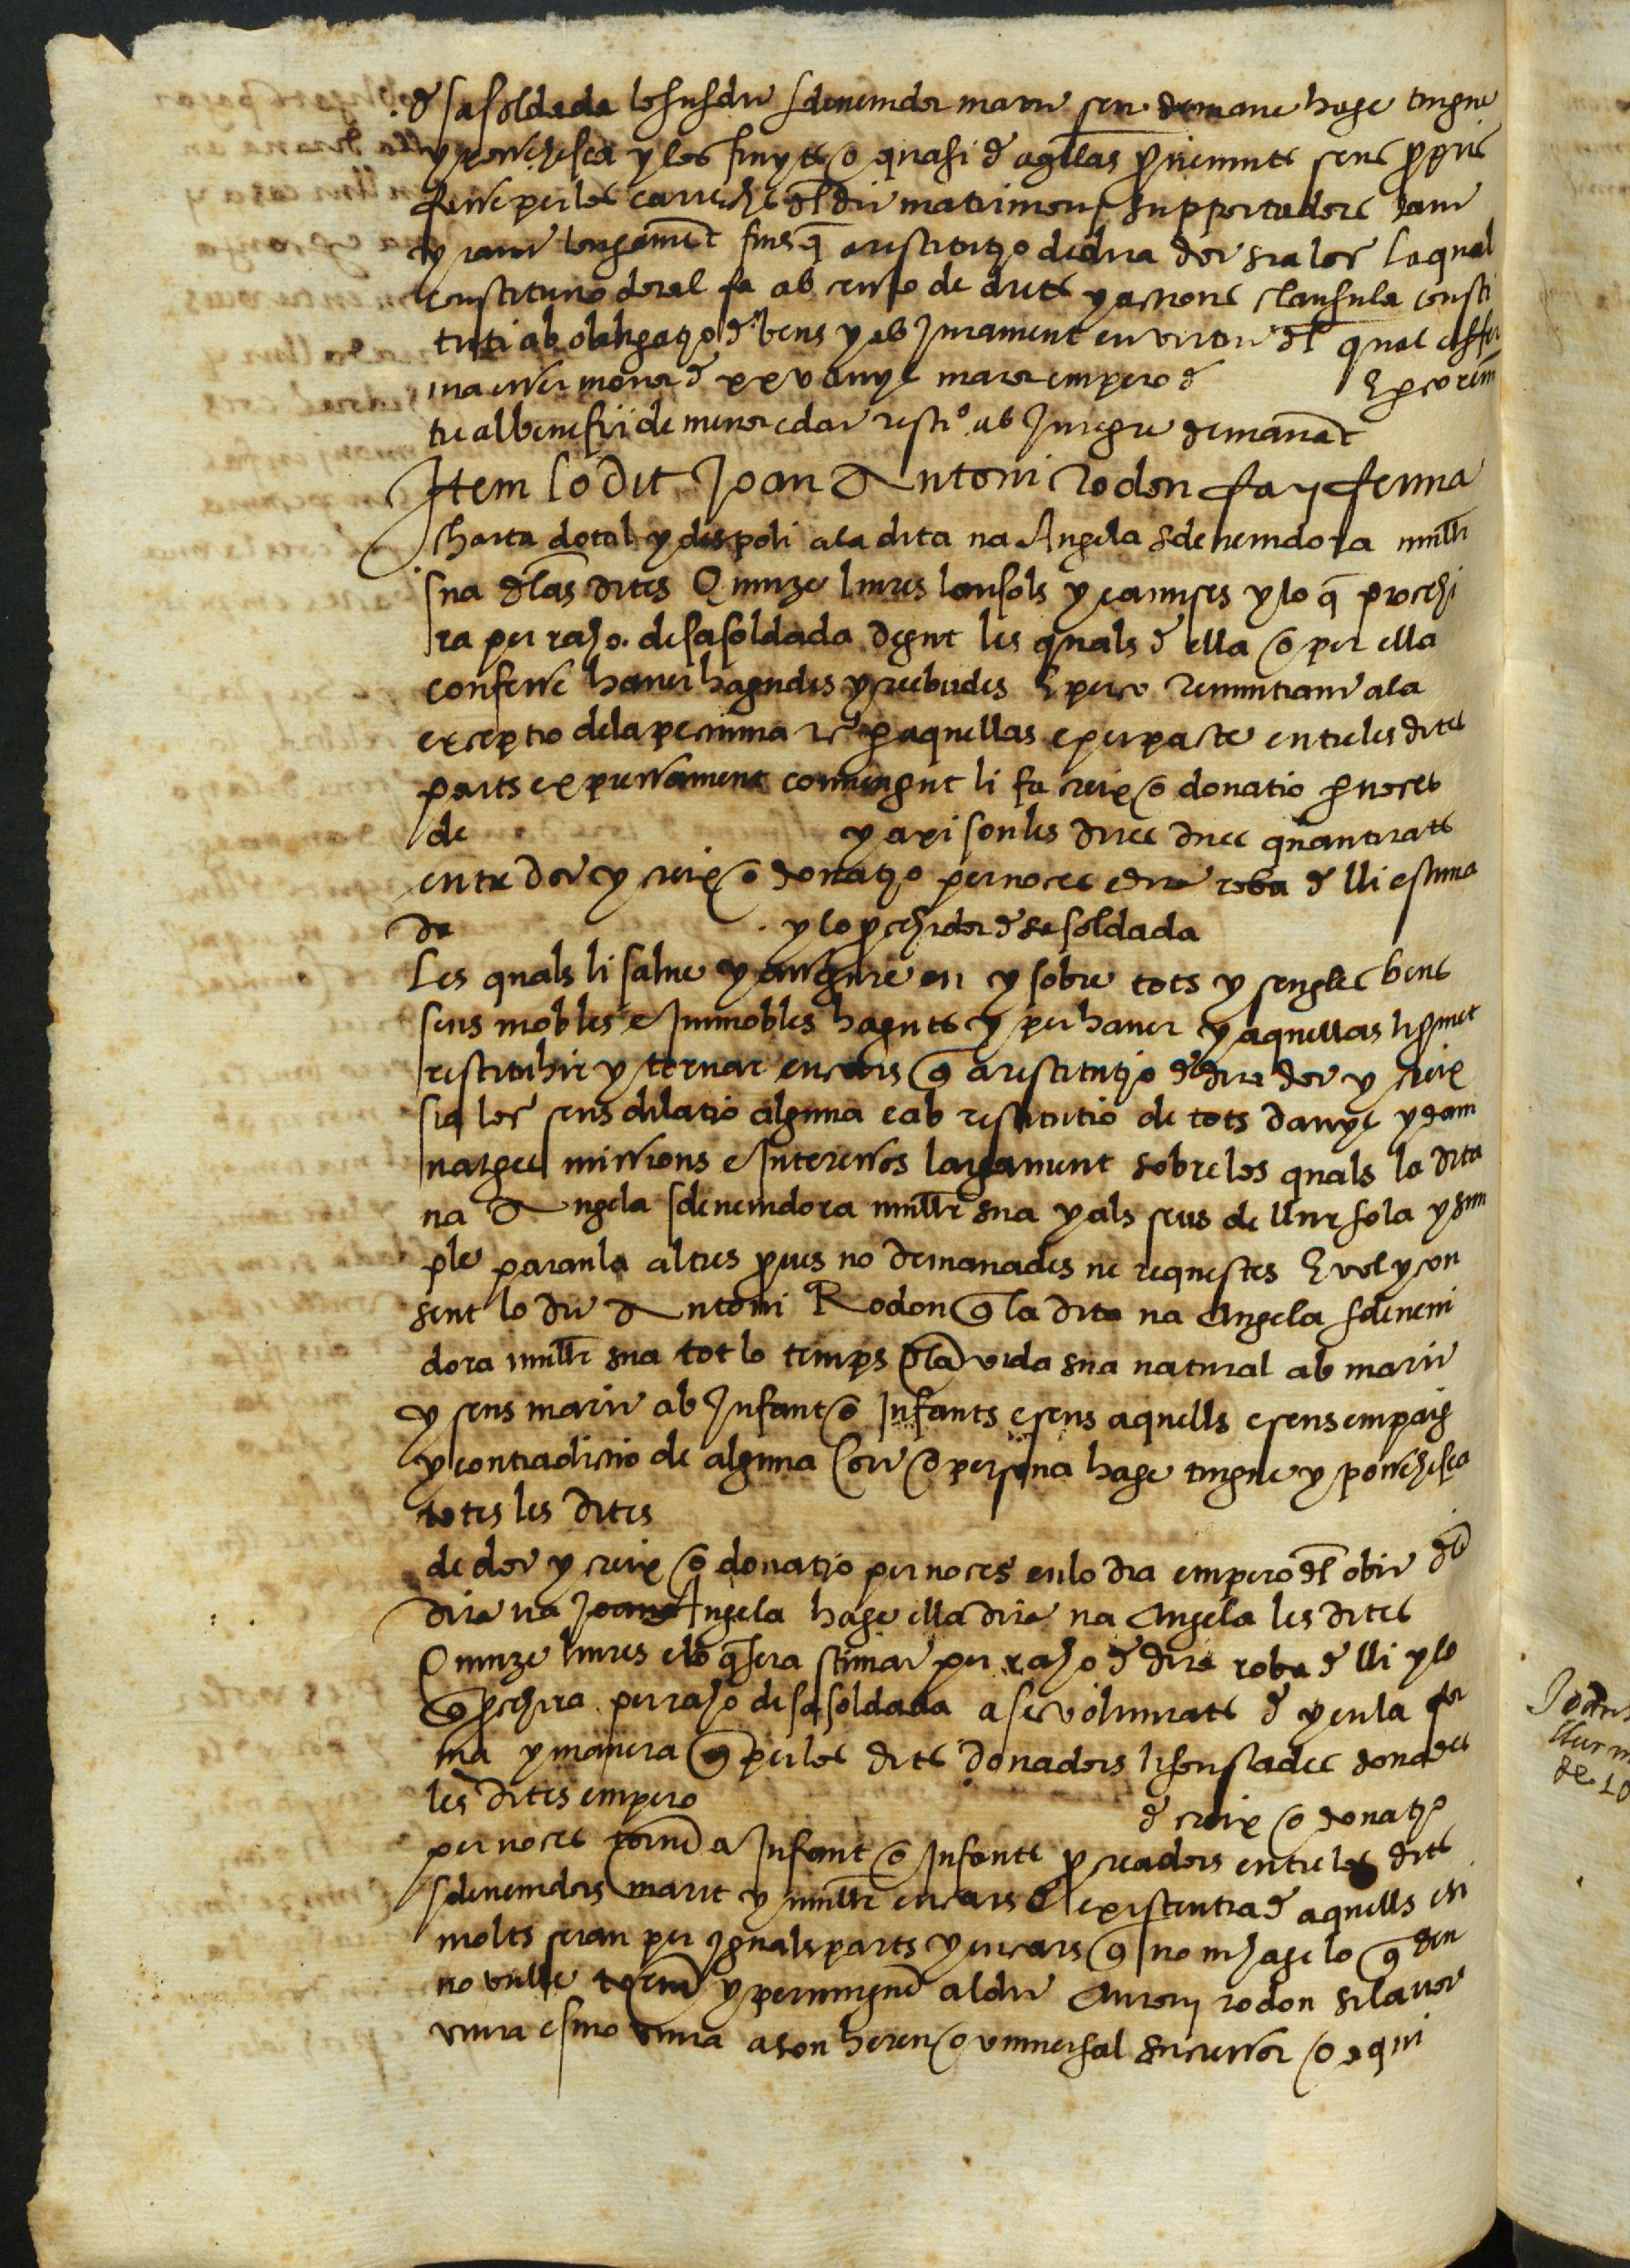 de sa soldada lo susdit sdevenidor marit seu demane hage tingue
y possehesca y los fruyts o quasi de aqllas pvenints sens ppris
fasse per los carrechs dl dit matrimoni supportadors tant
y tant longament fins q a restitutio de dita dot sia loc La qual
constitutio dotal fa ab cessio de drets y actions clausula consti
tuti ab obligatio de bens y ab Jurament en virtut dl qual affer
ma esser menor de xxv anys maior empero de E pço renun
tie al benefici de menor edat restio ab Integre demanant
Item lo dit Joan Antoni Rodon fa y ferma
charta dotal y despoli a la dita na Angela sdevenidora mullr
sua dlas dites Quinze liures lansols y camises y lo q procehi
ra per raho de sa soldada degut les quals de ella o per ella
confesse haver hagudes y reebudes E perço Renuntiant a la
exceptio de la pecunia rc p aquellas e per pacte entre les dites
parts expressament convengut li fa creix o donatio p noces
de y axi son les dites dues quantitats
entre dot y creix o donatio per noces e dita roba de lli estima
da y lo pcehidor de sa soldada
Les quals li salve y assegure en y sobre tots y sengles bens
seus mobles e Immobles haguts y per haver y aquellas li pmet
restituhir y tornar en cars q a restitutio de dita dot y creix
sia loc sens dilatio alguna e ab restitutio de tots danys y dam
natges missions e Interessos largament sobre los quals la dita
na Angela sdevenidora mullr sua y als seus de llur sola y sim
ple paraula altres pves no demanades ne requestes E vol y con
sent lo dit Antoni Rodon q la dita na Angela sdeveni
dora mullr sua tot lo temps dla vida sua natural ab marit
y sens marit ab Infant o Infants e sens aquells e sens empaig
y contradictio de alguna sort de persona hage tingue y possehesca
totes les dites
de dot y creix o donatio per noces en lo dia empero dl obit dla
dita na Joana Angela hage ella dita na Angela les dites
Quinze liures e lo q sera stimat per raho de dita roba de lli y lo
q pcehira per raho de sa soldada a ses voluntats de y en la for
ma y manera q per los dits donadors li son stades donades
les dites empero de creix o donatio
per noces torne a Infant o Infants pcreadors entre los dits
sdevenidors marit y mullr en cars d existentia de aquells e si
molts seran per yguals parts y en cars q no ni hage lo q deu
no vulle torne y pervingue al dit Antoni rodon si la vos
viura e si no viura a son hereu o universal successor o a qui